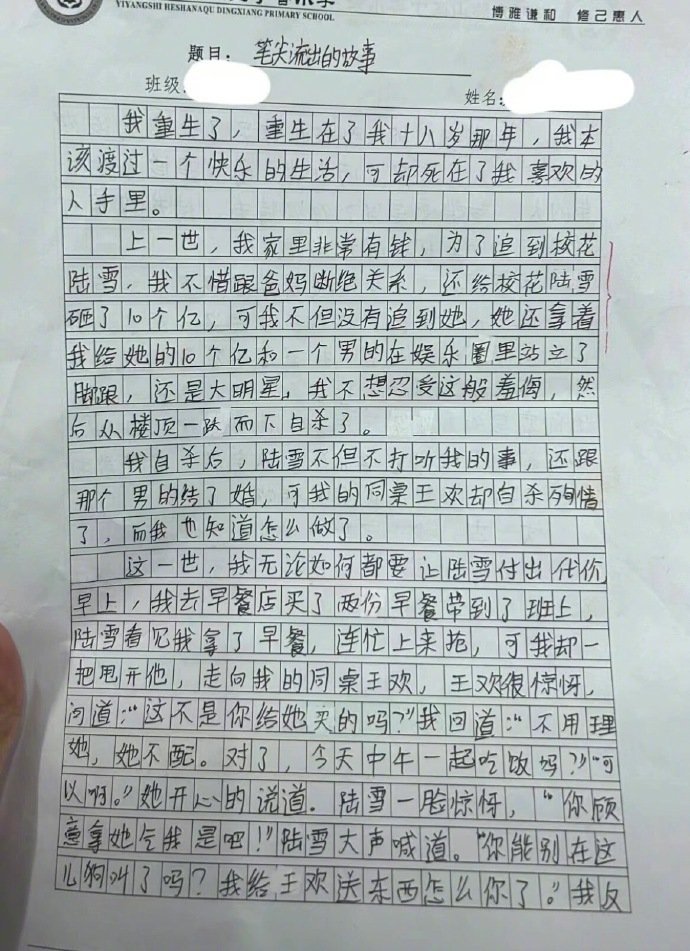 YIYANGSHI HESHANAQU DINGXIANG PRIMARY SCHOOL
博雅谦和 修己惠人
题目：笔尖流出的故事
班级： 姓名：
我重生了，重生在了我十八岁那年，我本
该渡过一个快乐的生活，可却死在了我喜欢的
人手里。
上一世，我家里非常有钱，为了追到校花
陆雪，我不惜跟爸妈断绝关系，还给校花陆雪
砸了10个亿，可我不但没有追到她，她还拿着
我给她的10个亿和一个男的在娱乐圈里站立了
脚跟，还是大明星，我不想忍受这般羞侮，然
后从楼顶一跃而下自杀了。
我自杀后，陆雪不但不打听我的事，还跟
那个男的结了婚，可我的同桌王欢却自杀殉情
了，而我也知道怎么做了。
这一世，我无论如何都要让陆雪付出代价
早上，我去早餐店买了两份早餐带到了班上，
陆雪看见我拿了早餐，连忙上来抢，可我却一
把甩开他，走向我的同桌王欢，王欢很惊呀，
问道：“这不是你给她买的吗？”我回道：“不用理
她，她不配。对了，今天中午一起吃饭吗？”“可
以啊。”她开心的说道．陆雪一脸惊呀，“你顾
意拿她气我是吧！”陆雪大声喊道。“你能别在这
儿狗叫了吗？我给王欢送东西怎么你了。”我反